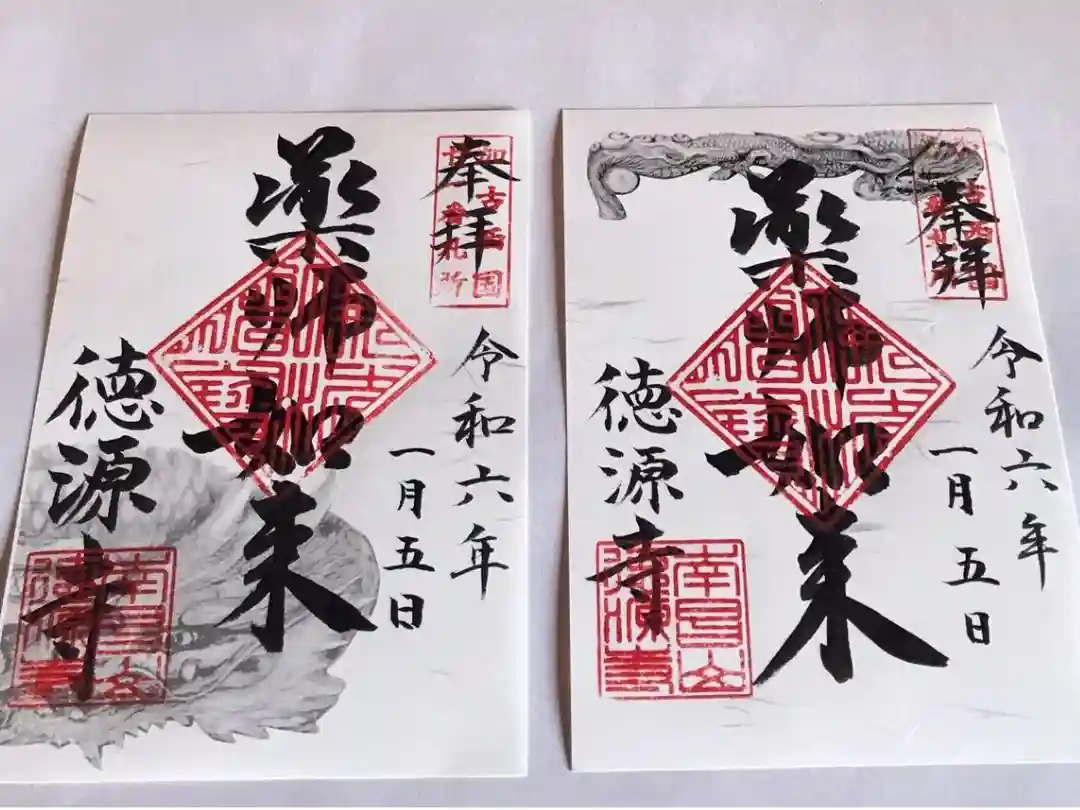 奉拝
古西国
札所
令和六年
一月五日
薬師如来
徳源寺
奉拝
令和六年
一月五日
薬師如来
徳源寺